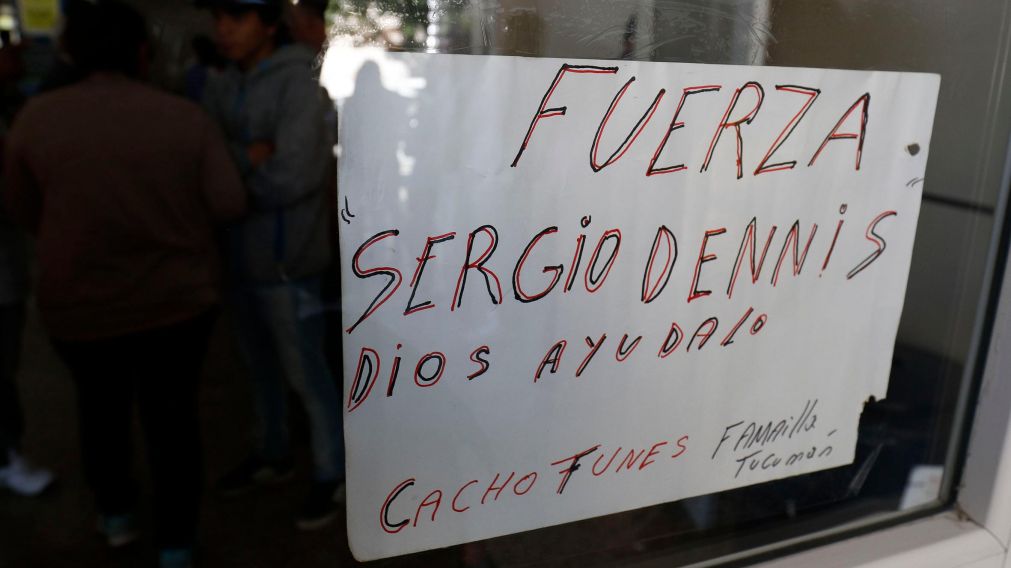 FUERZA
SERGIO DENNIS
DIOS AYUDALO
CACHO FUNES FAMAILLA
TUCUMÁN